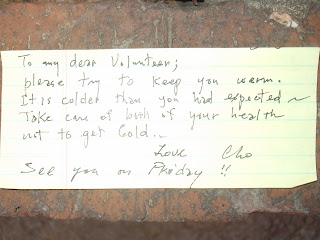 To my dear Volunteer;
please try to keep you warm.
It is colder than you had expected~
Take care of both of your health
not to get Cold.~
Love Cho
See you on Phriday !!